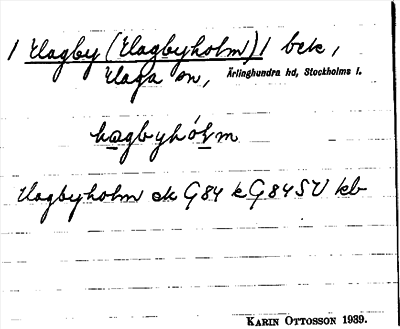 / Hagby (Hagbyholm) / bck,
Haga sn, Ärlinghundra hd, Stockholms l.
hagbyhólm
Hagbyholm ek G84 k G84SV kb
KARIN OTTOSSON 1939.